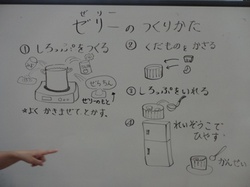 ゼリー
ゼリーの つくりかた
① しろっぷをつくる
ぜらちん
ゼリーのもと
☆よく かきまぜて とかす。
② くだものを かざる
③ しろっぷをいれる
④ れいぞうこで
ひやす
かんせい